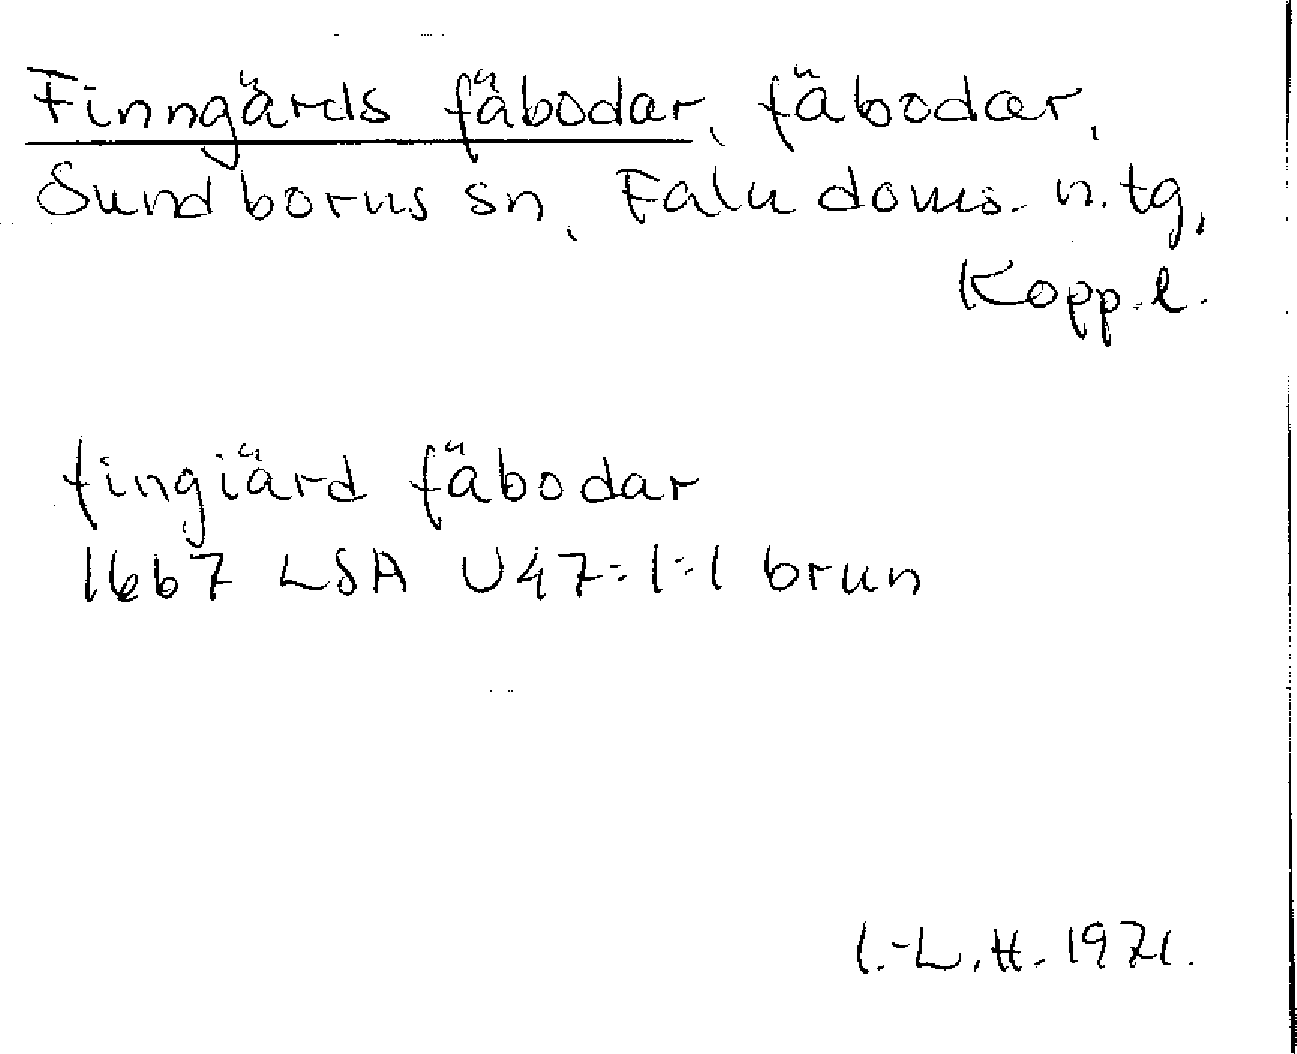 Finngärds fäbodar, fäbodar,
Sundborns sn, Falu doms. n. tg,
Kopp. l.
fingiärd fäbodar
1667 LSA U47:1:1 brun
I.-L.H. 1971.